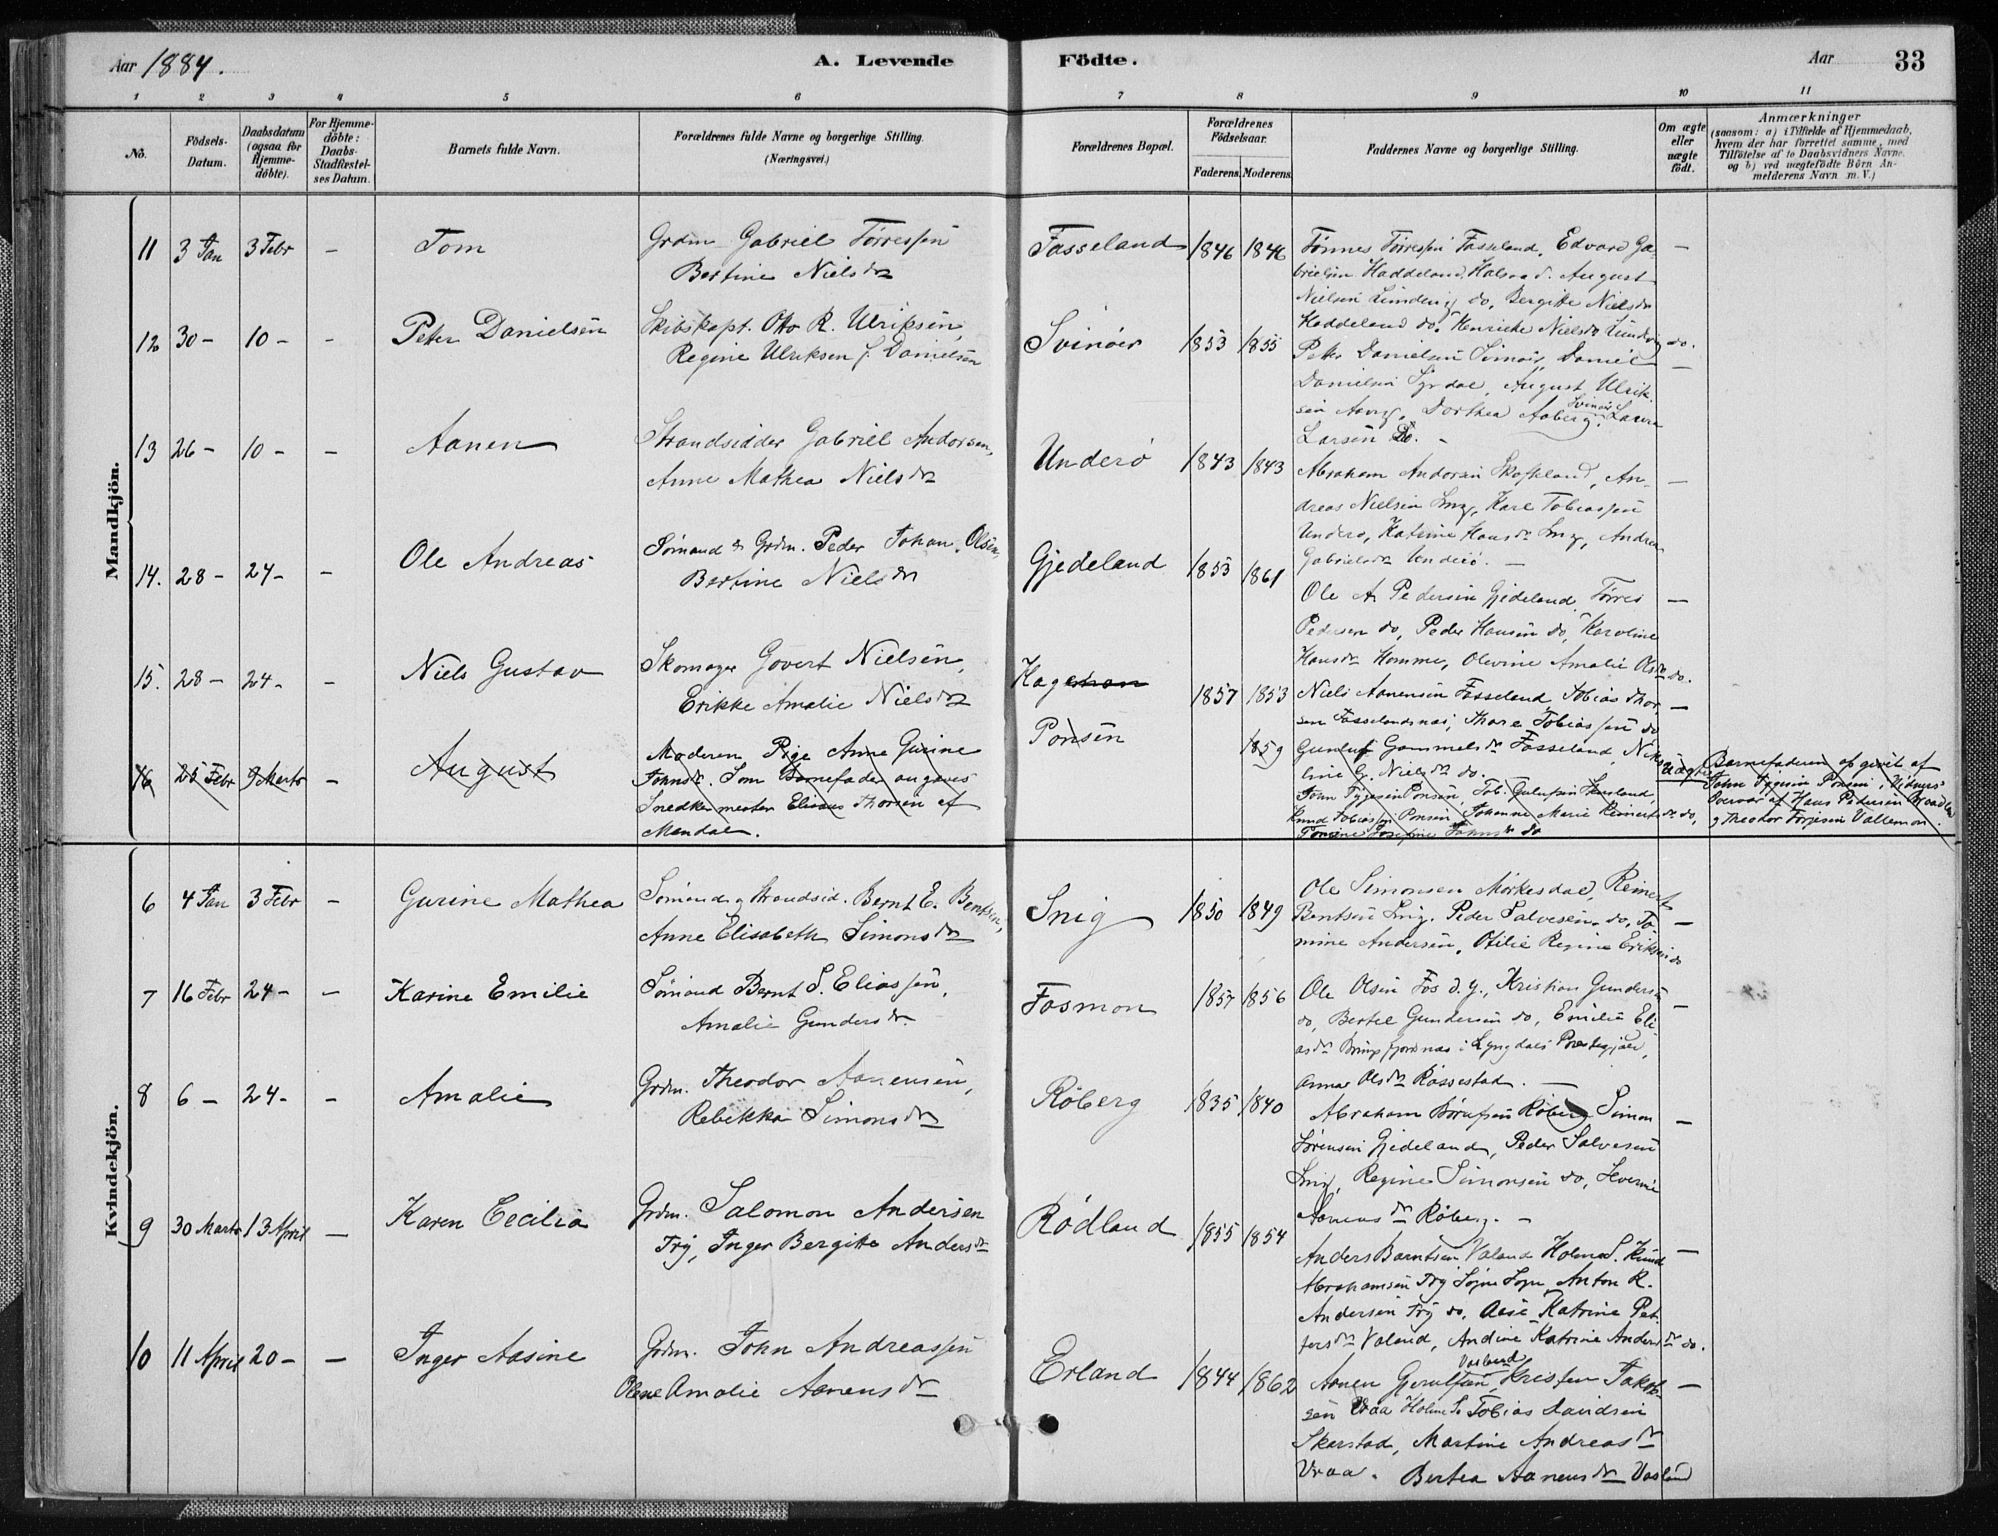 Aar 1884.
A. Levende Födte.
Aar
33
1 2 3 4 5 6 7 8 9 10 11
No.
Födsels-Datum.
Daabsdatum (ogsaa for Hjemme-döbte).
For Hjemme-döbte: Daabs-Stadfæstel-ses Datum.
Barnets fulde Navn.
Forældrenes fulde Navne og borgerlige Stilling. (Næringsvei.)
Forældrenes Bopæl.
Forældrenes Födselsaar.
Faderens. Moderens.
Faddernes Navne og borgerlige Stilling.
Om ægte eller uægte födt.
Anmærkninger
(saasom: a) i Tilfælde af Hjemmedaab, hvem der har forrettet samme, med Tilföielse af to Daabsvidners Navne, og b) ved uægtefödte Börn Anmelderens Navn m. V.)
Mandkjön.
11 3 Jan 3 Febr - Tom
Grdm. Gabriel Tørressen
Bertine Nielsdr
Fasseland 1846 1846
Tønnes Tørressen Fasseland, Edvard Ga-
brielsen Haddeland, Halsaa S. August
Nielsen Lundervig do, Bergitte Nielsdr
Haddeland do, Henrikke Nielsdr Lundevig do.
-
12 30 - 10 - - Peter Danielsen
Skibskapt. Otto R. Ulriksen,
Regine Ulriksen f. Danielsen
Svinöer 1853 1855
Peter Danielsen Svinör, Daniel
Danielsen Syrdal, August Ulrik-
sen, Dorthea Aaberg, Svinör Laura
Larsen Do. -
-
13 26 - 10 - - Aanen
Strandsidder Gabriel Andorsen,
Anne Mathea Nielsdr
Underö 1843 1843
Abraham Andorsen Skofteland, An-
dreas Nielsen Snig, Karl Tobiassen
Underö, Katrine Hansdr Snig, Andrea
Gabrielsdr Underö. -
-
14. 28 - 24 - - Ole Andreas
Sömand & Grdm. Peder Johan Olsen,
Bertine Nielsdr
Gjedeland 1853 1861
Ole A. Pedersen Gjedeland, Tørres
Pedersen do, Peder Hansen do, Karoline
Hansdr Homme, Olevine Amalie Olsdr do.
-
15. 28 - 24 - - Niels Gustav
Skomager Govert Nielsen,
Erikke Amalie Nielsdr
Kage 1857 1853
Niels Aanensen Fasseland, Tobias Thor-
sen Fasselandsnes, Thore Tobiassen do
Gunluf Gammelsdr Fasseland,
line G. Nielsdr do.
-
16 25 Febr 9 Marts - August
Moderen Pige Anne Gurine
Johnsdr. Som Barnefader angaves
Snedkermester Thorsen af
Mandal.
Ponsen 1859
John Tygesen Ponsen,
Knud Tobiassen Ponsen, Johanne Marie Reinertsdr do,
Josefine Johnsdr do
Uægte
Barnefaderen opgivet af
John Tygesen Ponsen, Vidner
Hans Pedersen
og Theodor Vallemon.
Kvindekjön.
6 4 Jan 3 Febr - Gurine Mathea
Sömand og Strandsid. Bernt E. Bentsen,
Anne Elisabeth Simonsdr
Snig 1850 1849
Ole Simonsen Mörkesdal, Reinert
Bentsen Snig, Peder Salvesen do, To-
mine Andersen, Otilie Regine Eriksen do
-
7 16 Febr 24 - - Karine Emilie
Sömand Bernt S. Eliassen,
Amalie Gundersdr.
Fosmon 1857 1856
Ole Olsen Fos d. y., Kristian Gundersen
do, Bertel Gundersen do, Emilie Eli-
asdr i Lyngdals Prestegjæld,
Anna Olsdr Røssestad. -
-
8 6 - 24 - - Amalie
Grdm. Theodor Aanensen,
Rebekka Simonsdr
Röberg 1835 1840
Abraham Börufsen Röberg, Simon
Sörensen Gjedeland, Peder Salvesen
Snig, Regine Simonsen do,
Aanensdr Röberg. -
-
9 30 Marts 13 April - Karen Cecilia
Grdm. Salomon Andersen
Try, Inger Bergitte Andersdr
Rödland 1855 1854
Anders Berntsen Valand Holme S. Knud
Abrahamsen Try Søgne Sogn, Anton R.
Andersen Try do, Aase Katrine Pet-
tersdr Valand, Andine Katrine Andersdr do.
-
10 11 April 20 - - Inger Aasine
Grdm. John Andreassen
Olene Amalie Aanensdr
Erland 1844 1862
Aanen Gjerulfsen Vasland, Kristen Jakob-
sen Vraa Holme S. Tobias Davidsen
Skarstad, Martine Andreasdr
Vraa. Bertea Aanensdr Vasland
-